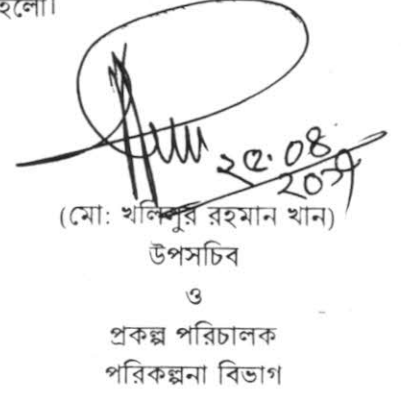 হলো।
২৫.০৪
(মো: খলিলুর রহমান খান)
উপসচিব
ও
প্রকল্প পরিচালক
পরিকল্পনা বিভাগ